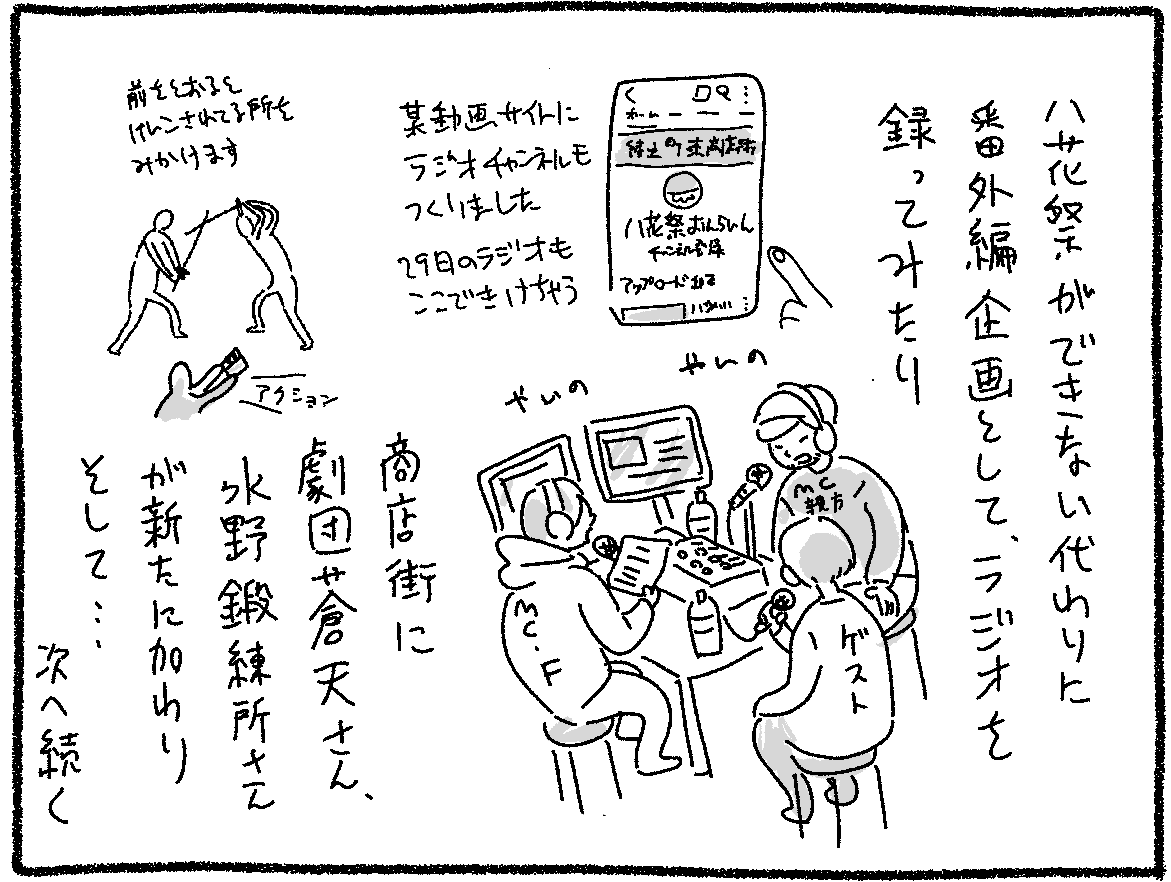 八花祭ができない代わりに
番外編企画として、ラジオを
録ってみたり
ホーム
八花祭おんらいん
チャンネル登録
アップロード
某動画サイトに
ラジオチャンネルも
つくりました
29日のラジオも
ここできけちゃう
前をとおると
けいこされてる所を
みかけます
アクション
やいの
やいの
MC
親方
MC.F
ゲスト
商店街に
劇団蒼天さん、
水野鍛練所さん
が新たに加わり
そして…
次へ続く